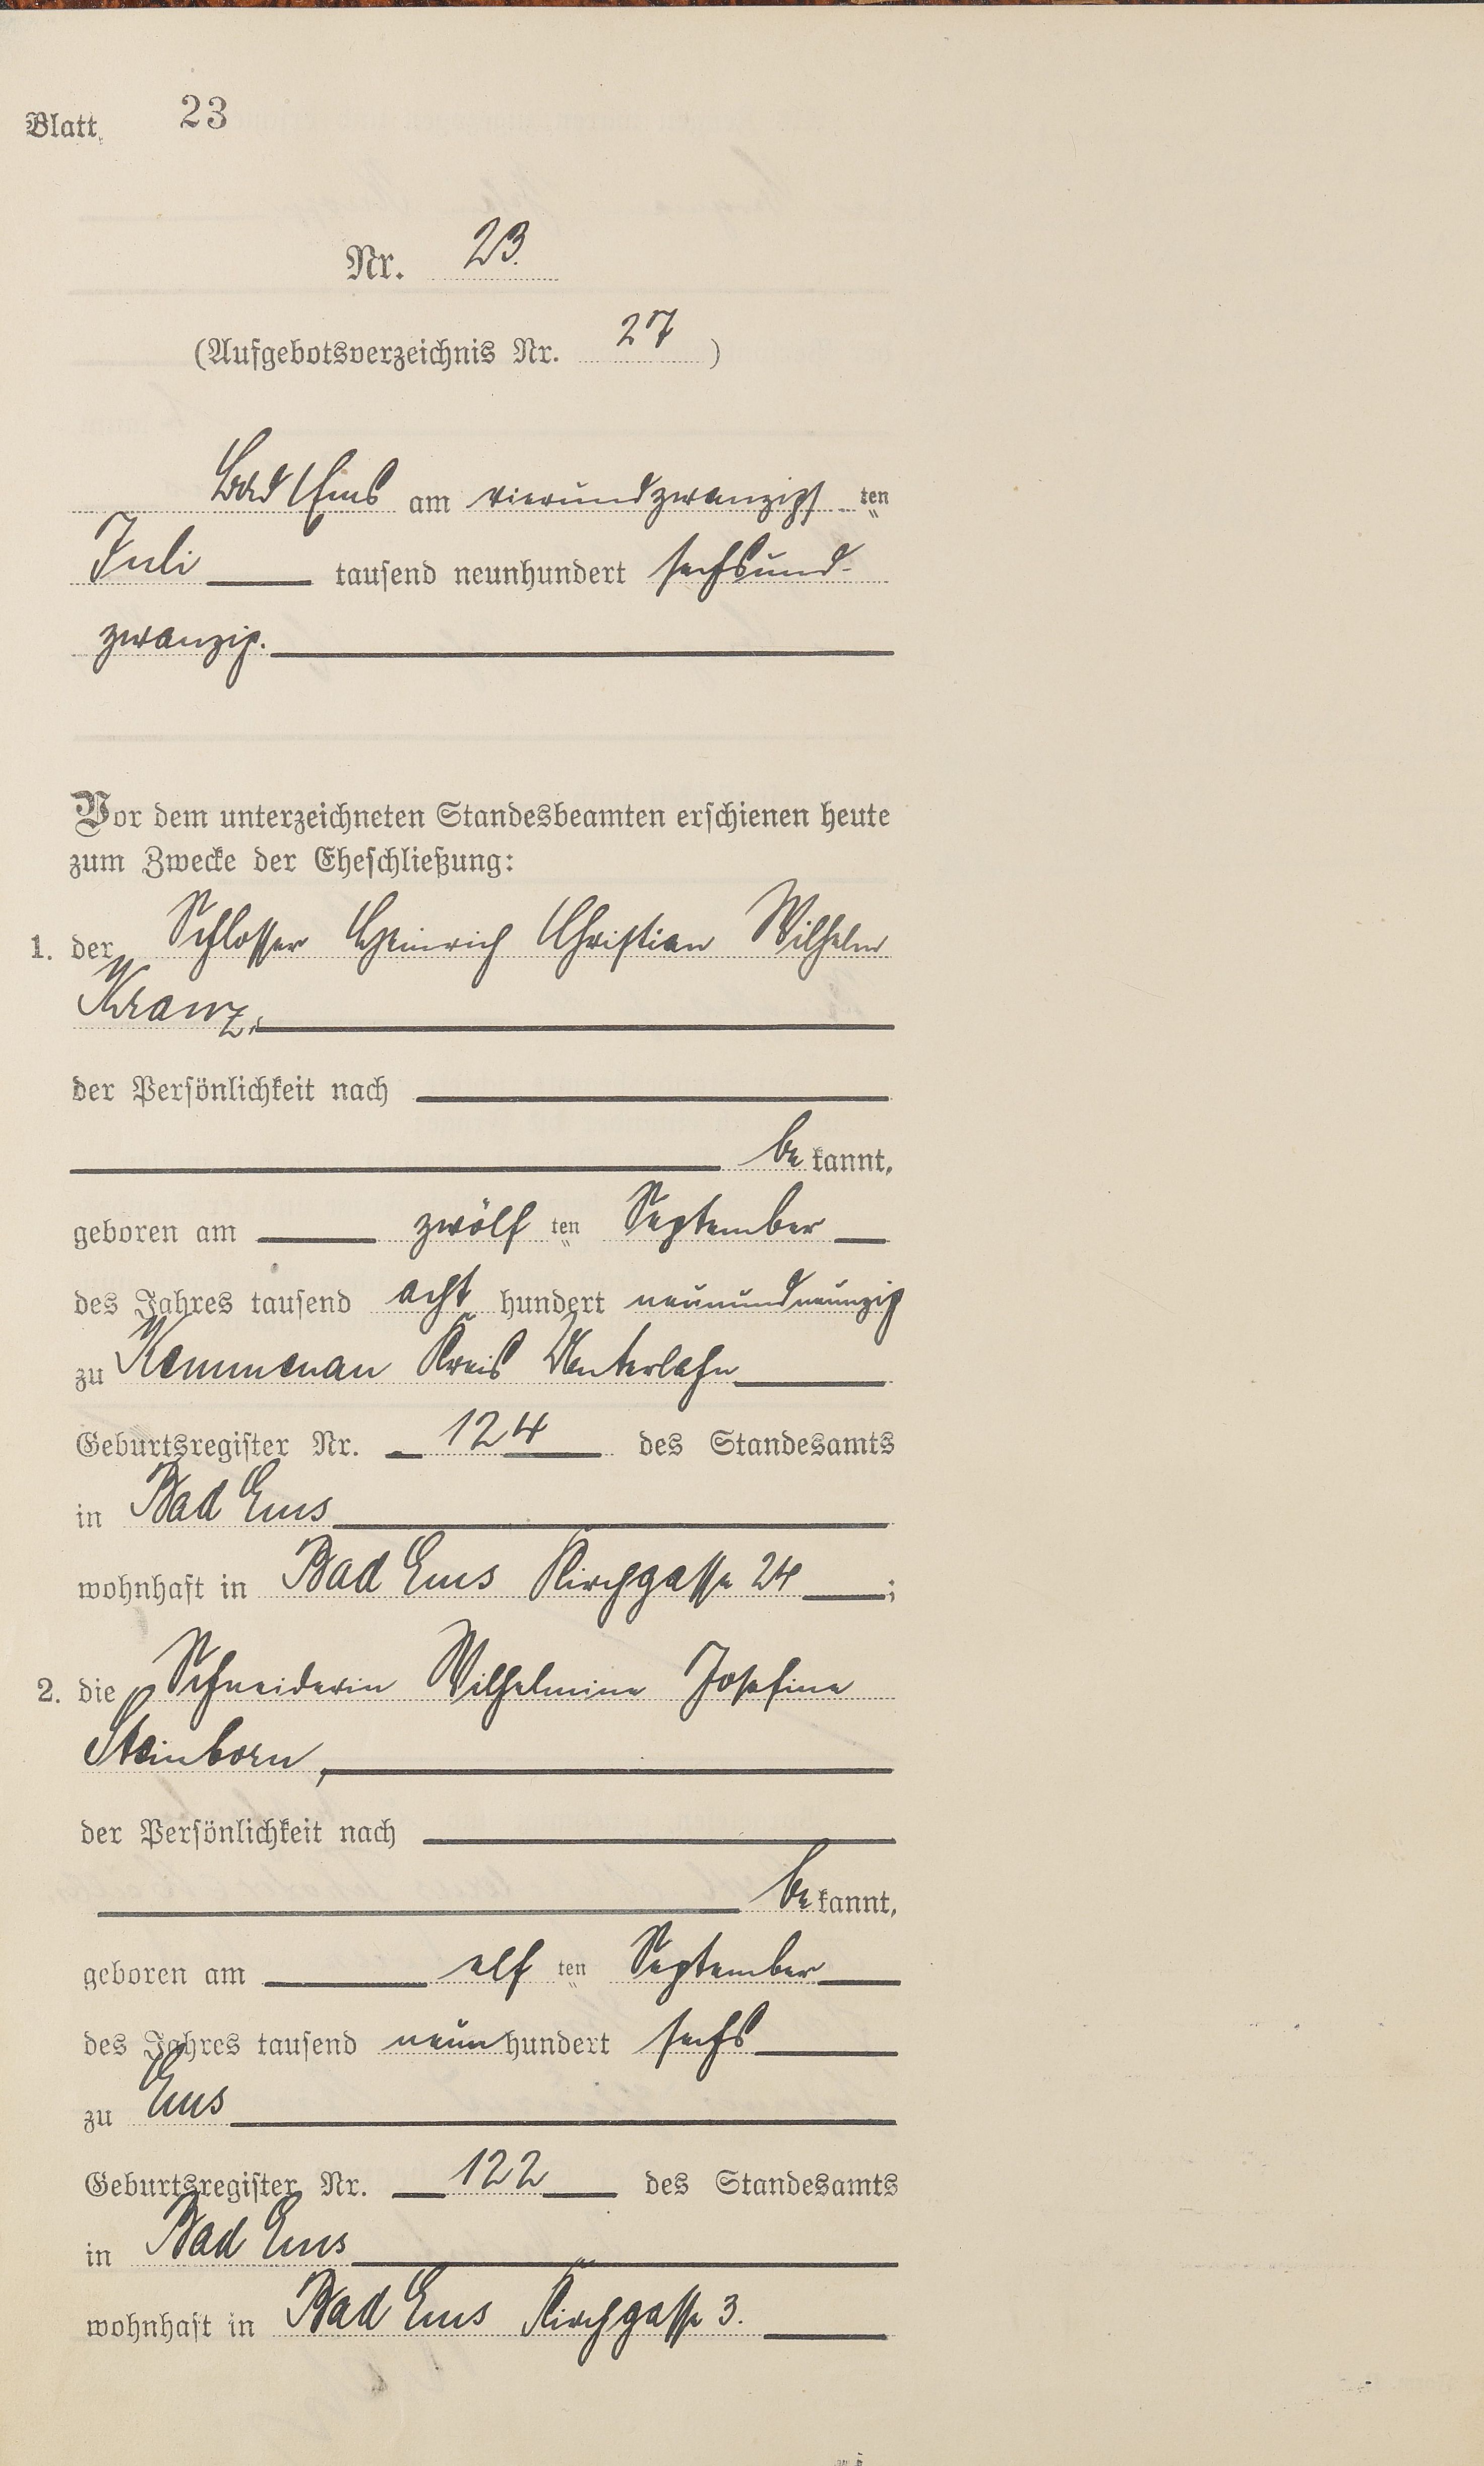 Blatt 23
Nr. 23.
(Aufgebotsverzeichnis Nr. 27)
Bad Ems am vierundzwanzigsten
Juli tausend neunhundert sechsund-
zwanzig.
Vor dem unterzeichneten Standesbeamten erschienen heute
zum Zwecke der Eheschließung:
1. der Schlosser Heinrich Christian Wilhelm
Kranz,
der Persönlichkeit nach
bekannt,
geboren am zwölften September
des Jahres tausend achthundert neunundneunzig
zu Kemmenau Kreis Unterlahn
Geburtsregister Nr. 124 des Standesamts
in Bad Ems
wohnhaft in Bad Ems Kirchgasse 24;
2. die Schneiderin Wilhelmine Josefine
Steinborn,
der Persönlichkeit nach
bekannt,
geboren am elften September
des Jahres tausend neunhundert sechs
zu Ems
Geburtsregister Nr. 122 des Standesamts
in Bad Ems
wohnhaft in Bad Ems Kirchgasse 3.